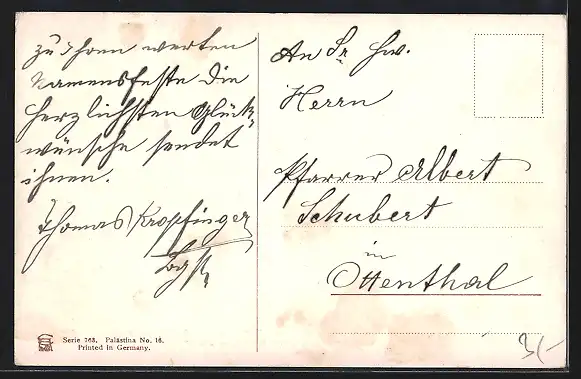 zu Ihren werten
Namensfeste die
herzlichsten Glück-
wünsche sendet
ihnen.
Thomas Kropfinger
An Sr. Hw.
Herrn
Pfarrer Albert
Schubert
in
Ottenthal
Serie 768. Palästina No. 16.
Printed in Germany.
3/-